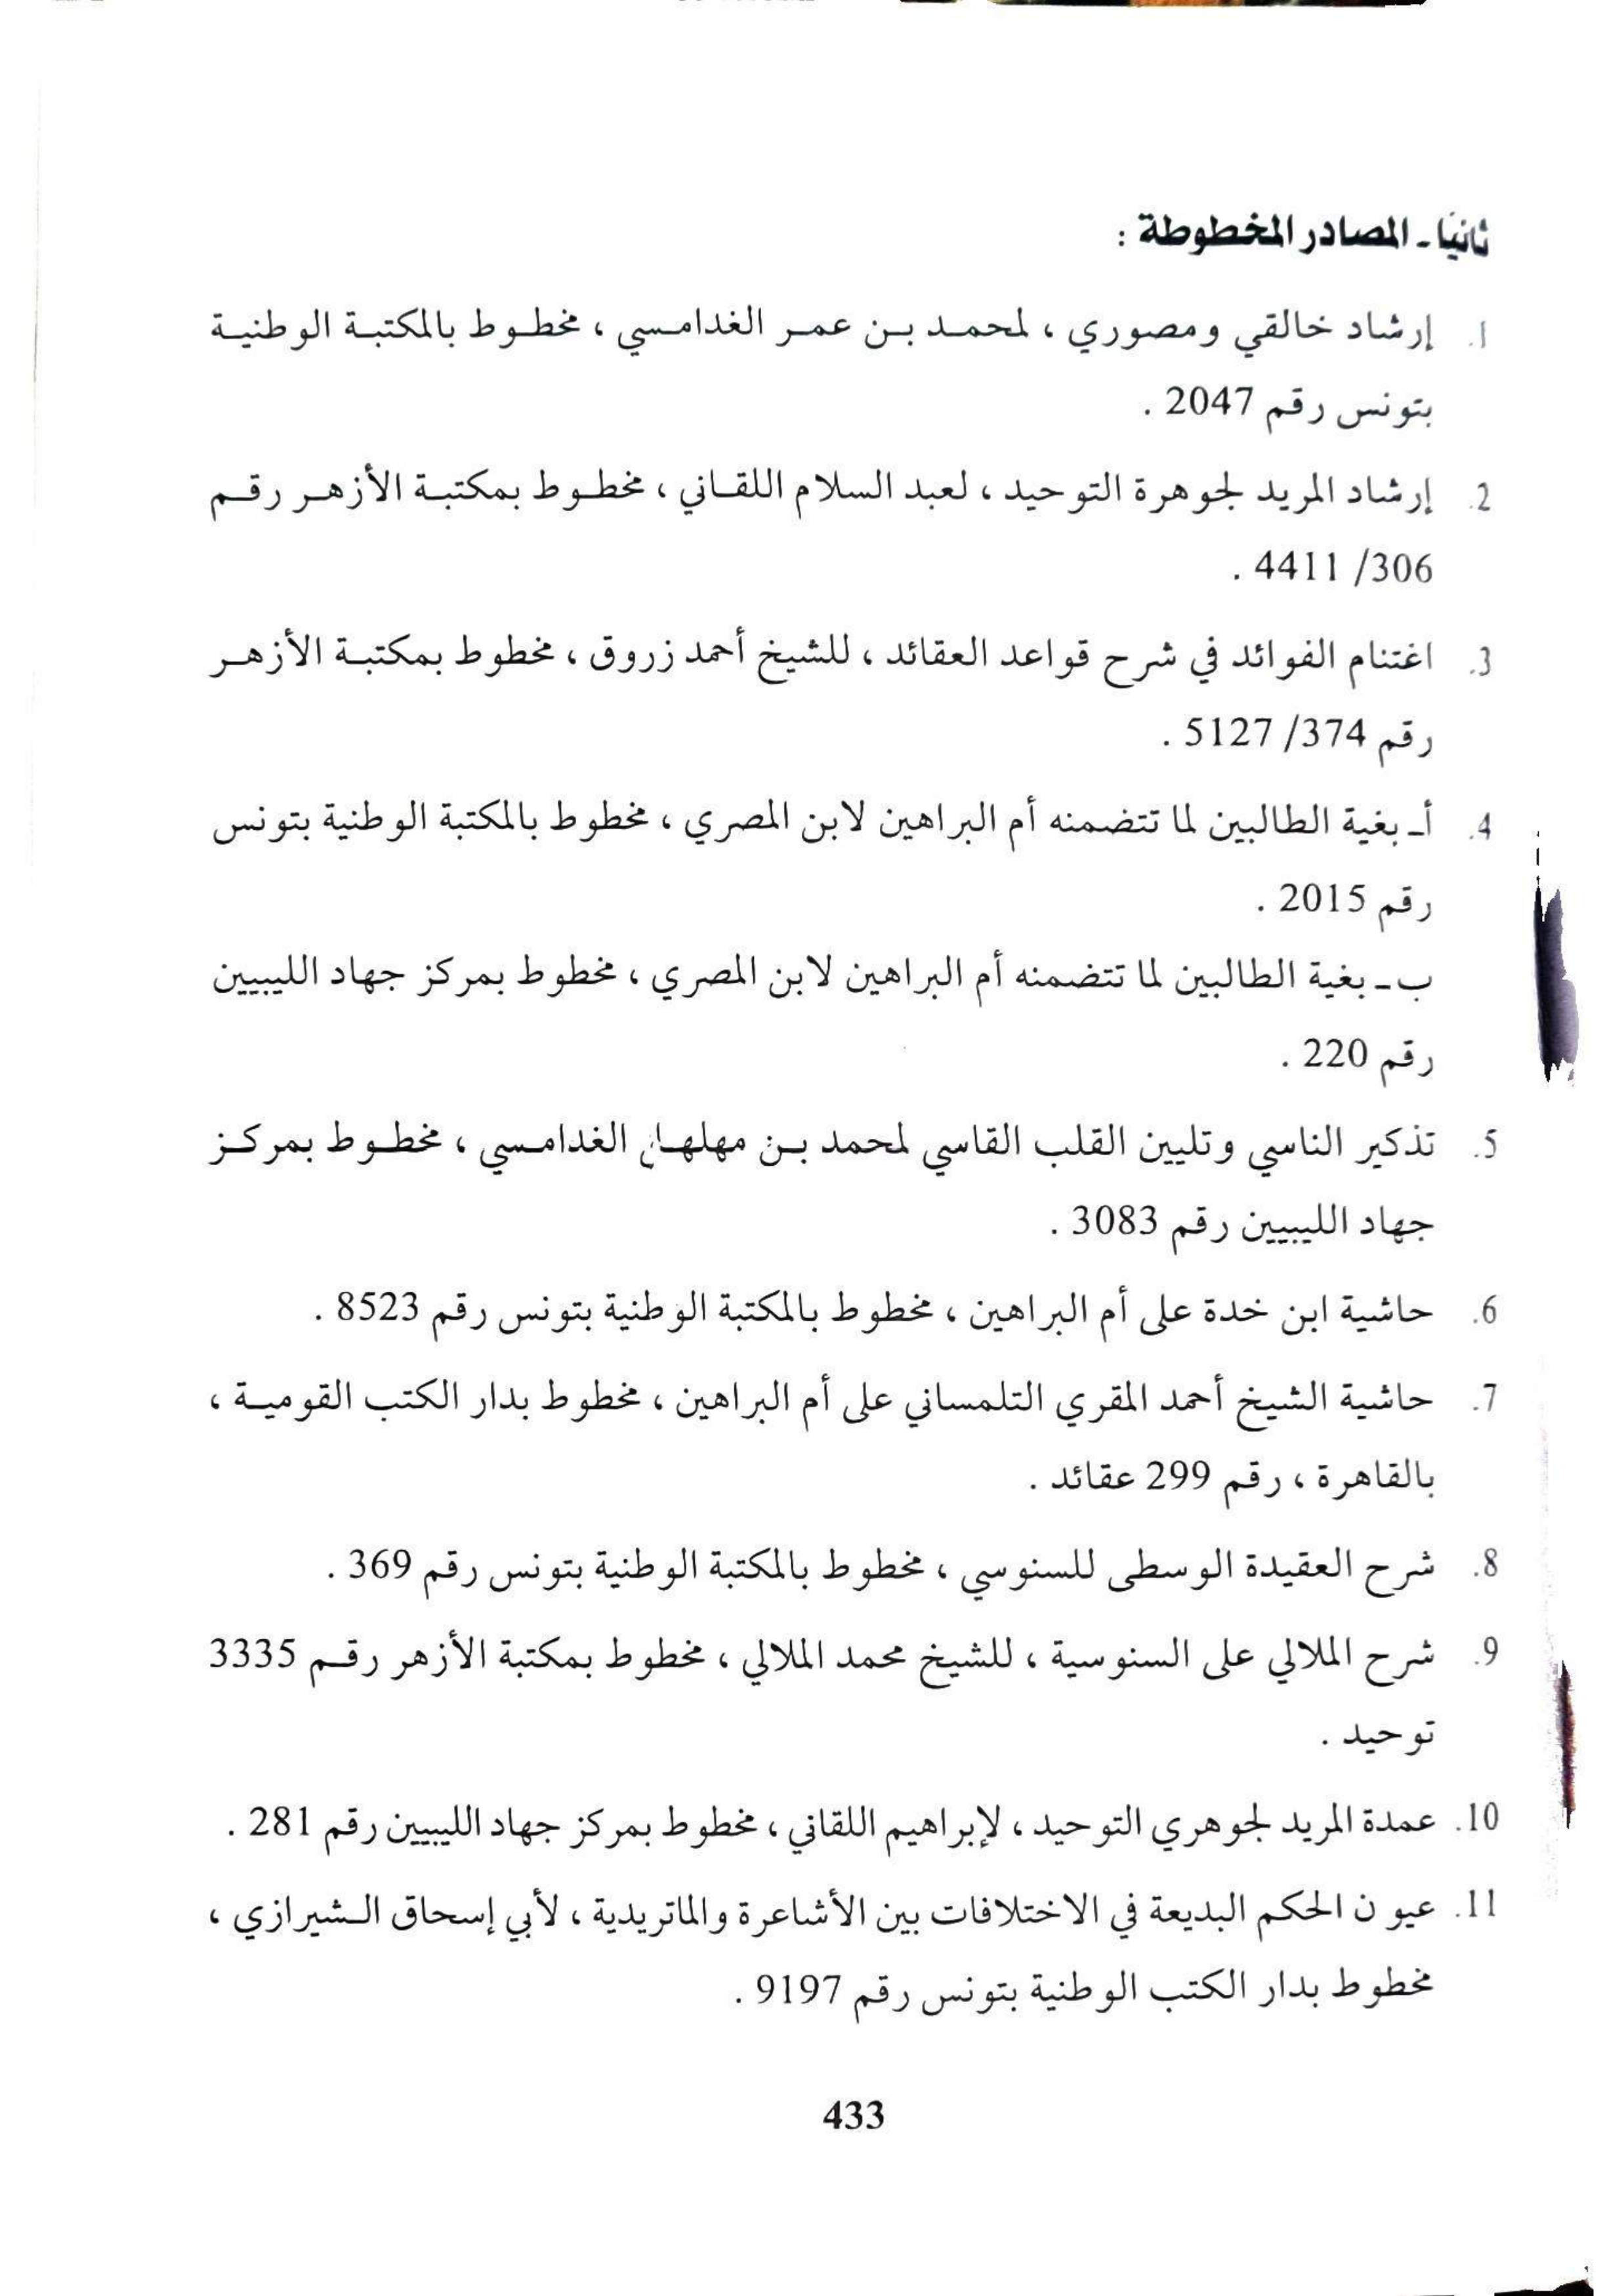 ثانيًا ـ المصادر المخطوطة :
1. إرشاد خالقي ومصوري ، لمحمد بن عمر الغدامسي ، مخطوط بالمكتبة الوطنية
بتونس رقم 2047 .
2. إرشاد المريد لجوهرة التوحيد ، لعبد السلام اللقاني ، مخطوط بمكتبة الأزهر رقم
306/ 4411 .
3. اغتنام الفوائد في شرح قواعد العقائد ، للشيخ أحمد زروق ، مخطوط بمكتبة الأزهر
رقم 374/ 5127 .
4. أـ بغية الطالبين لما تتضمنه أم البراهين لابن المصري ، مخطوط بالمكتبة الوطنية بتونس
رقم 2015 .
ب ـ بغية الطالبين لما تتضمنه أم البراهين لابن المصري ، مخطوط بمركز جهاد الليبيين
رقم 220 .
5. تذكير الناسي وتليين القلب القاسي لمحمد بن الغدامسي ، مخطوط بمركز
جهاد الليبيين رقم 3083 .
6. حاشية ابن خدة على أم البراهين ، مخطوط بالمكتبة الوطنية بتونس رقم 8523 .
7. حاشية الشيخ أحمد المقري التلمساني على أم البراهين ، مخطوط بدار الكتب القومية ،
بالقاهرة ، رقم 299 عقائد .
8. شرح العقيدة الوسطى للسنوسي ، مخطوط بالمكتبة الوطنية بتونس رقم 369 .
9. شرح الملالي على السنوسية ، للشيخ محمد الملالي ، مخطوط بمكتبة الأزهر رقم 3335
توحيد .
10. عمدة المريد لجوهري التوحيد ، لإبراهيم اللقاني ، مخطوط بمركز جهاد الليبيين رقم 281 .
11. عيون الحكم البديعة في الاختلافات بين الأشاعرة والماتريدية ، لأبي إسحاق الشيرازي ،
مخطوط بدار الكتب الوطنية بتونس رقم 9197 .
433